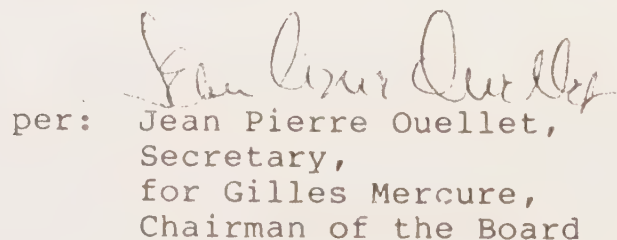 Jean Pierre Ouellet
per: Jean Pierre Ouellet,
Secretary,
for Gilles Mercure,
Chairman of the Board